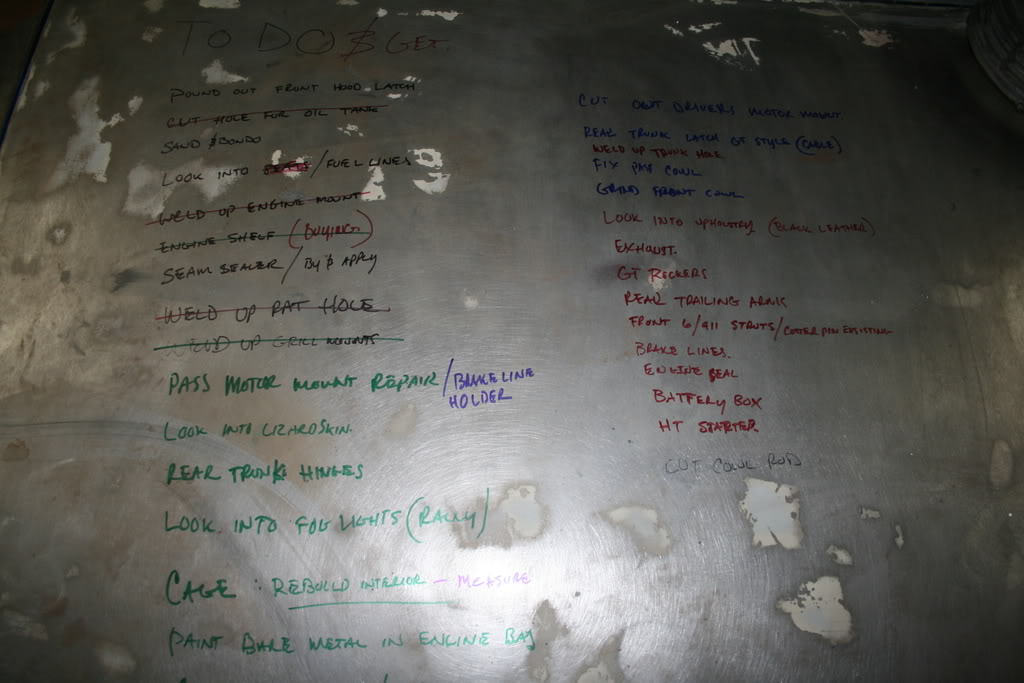 TO DO & GET.
POUND OUT FRONT HOOD LATCH
CUT HOLE FOR OIL TANK
SAND & BONDO
LOOK INTO / FUEL LINES
WELD UP ENGINE MOUNT
ENGINE SHELF (BUYING)
SEAM SEALER / BY & APPLY
WELD UP RAT HOLE
WELD UP GRILL MOUNTS
PASS MOTOR MOUNT REPAIR / BRAKE LINE HOLDER
LOOK INTO LIZARDSKIN.
REAR TRUNK HINGES
LOOK INTO FOG LIGHTS (RALLY)
CAGE : REBUILD INTERIOR – MEASURE
PAINT BARE METAL IN ENGINE BAY
CUT OUT DRIVERS MOTOR MOUNT.
REAR TRUNK LATCH GT STYLE (CABLE)
WELD UP TRUNK HOLE
FIX PASS COWL
GRIND FRONT COWL
LOOK INTO UPHOLSTRY (BLACK LEATHER)
EXHAUST.
GT ROCKERS
REAR TRAILING ARMS
FRONT 6/911 STRUTS / COTTER PIN EXISTING
BRAKE LINES.
ENGINE SEAL
BATTERY BOX
HT STARTER.
CUT COWL ROD